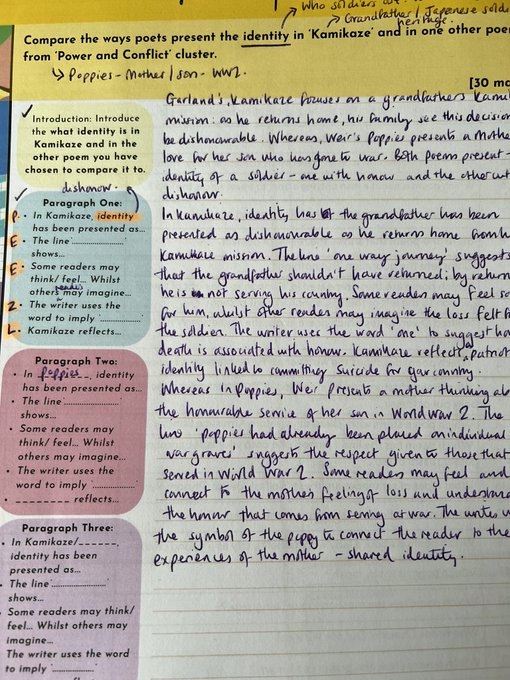 Who soldiers are.
Grandfather / Japanese
heritage.
Compare the ways poets present the identity in 'Kamikaze' and in one other
from 'Power and Conflict' cluster.
Poppies - Mother/son - WW2.
[30
Introduction: Introduce
the what identity is in
Kamikaze and in the
other poem you have
chosen to compare it to.
dishonour.
Paragraph One:
P. • In Kamikaze, identity
has been presented as...
E • The line '....................'
shows...
E • Some readers may
think/ feel... Whilst
others may imagine...
readers
Z • The writer uses the
word to imply '..................'
L. • Kamikaze reflects...
Paragraph Two:
• In poppies_, identity
has been presented as...
• The line '....................'
shows...
• Some readers may
think/ feel... Whilst
others may imagine...
• The writer uses the
word to imply '..................'
• ________ reflects...
Paragraph Three:
• In Kamikaze/______,
identity has been
presented as...
• The line '....................'
shows...
• Some readers may think/
feel... Whilst others may
imagine...
The writer uses the word
to imply '..................'
Garland's, Kamikaze focuses on a grandfathers
mission: as he returns home, his family see this decision
be dishonourable. Whereas, Weir's Poppies presents a Mother
love for her son who has gone to war. Both poems present
identity of a soldier - one with honour and the other
dishonour.
In Kamikaze, identity has of the grandfather has been
presented as dishonourable as he returns home from
Kamikaze mission. The line 'one way journey' suggests
that the grandfather shouldn't have returned; by
he is not serving his country. Some readers may feel
for him, whilst other readers may imagine the loss felt
the soldier. The writer uses the word 'one' to suggest
death is associated with honour. Kamikaze reflects a
identity linked to committing suicide for your country.
Whereas in Poppies, Weir presents a mother thinking
the honourable service of her son in World War 2. The
line 'poppies had already been placed on individual
war graves' suggests the respect given to those that
served in World War 2. Some readers may feel and
connect to the mothers feeling of loss and
the honour that comes from serving at war. The writer
the symbol of the poppy to connect the reader to the
experiences of the mother - shared identity.